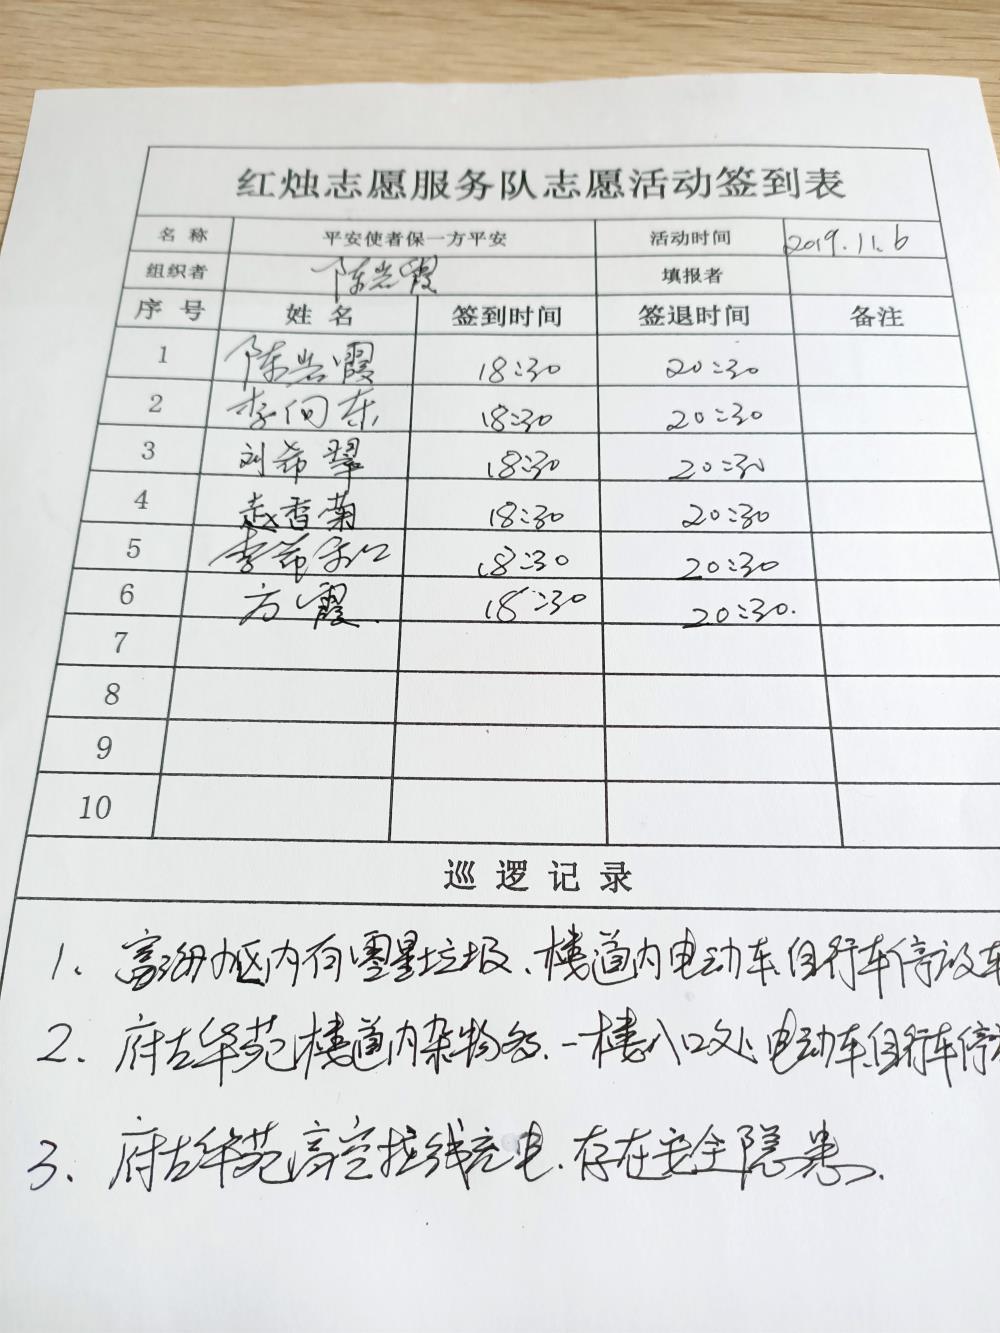 红烛志愿服务队志愿活动签到表
名称 平安使者保一方平安 活动时间 2019.11.6
组织者 陈岩霞 填报者
序号 姓名 签到时间 签退时间 备注
1 陈岩霞 18:30 20:30
2 李向东 18:30 20:30
3 刘希翠 18:30 20:30
4 赵香菊 18:30 20:30
5 李希 18:30 20:30
6 方霞 18:30 20:30.
7
8
9
10
巡逻记录
1、小区内有零星垃圾、楼道内电动车.自行车停放
2、府古华苑楼道内杂物多.一楼入口处电动车.自行车停
3、府古华苑高空拉线充电.存在安全隐患.